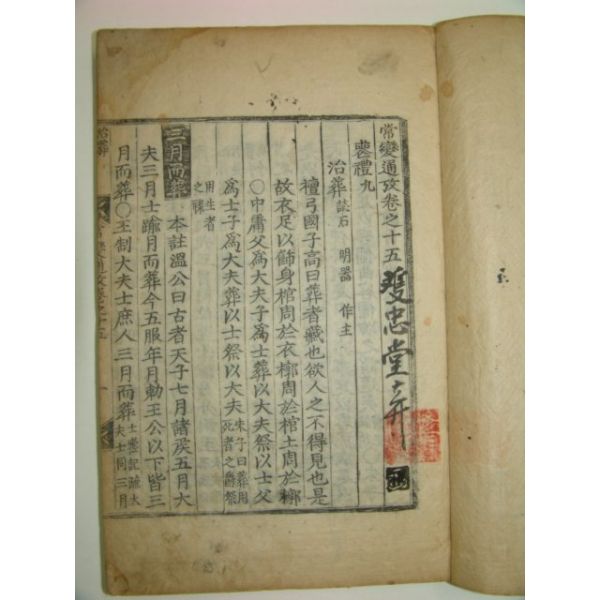 常變通攷卷之十五
雙忠堂
喪禮九
治葬 誌石 明器 作主
檀弓國子高曰葬者藏也欲人之不得見也是
故衣足以飾身棺周於衣槨周於棺土周於槨
○中庸父爲大夫子爲士葬以大夫祭以士父
爲士子爲大夫葬以士祭以大夫 朱子曰葬用死者之爵祭
用生者之祿
三月而葬 本註溫公曰古者天子七月諸侯五月大
夫三月士踰月而葬今五服年月勅王公以下皆三
月而葬○王制大夫士庶人三月而葬 士喪記疏大夫士同三月
治葬
常變通攷卷之十五